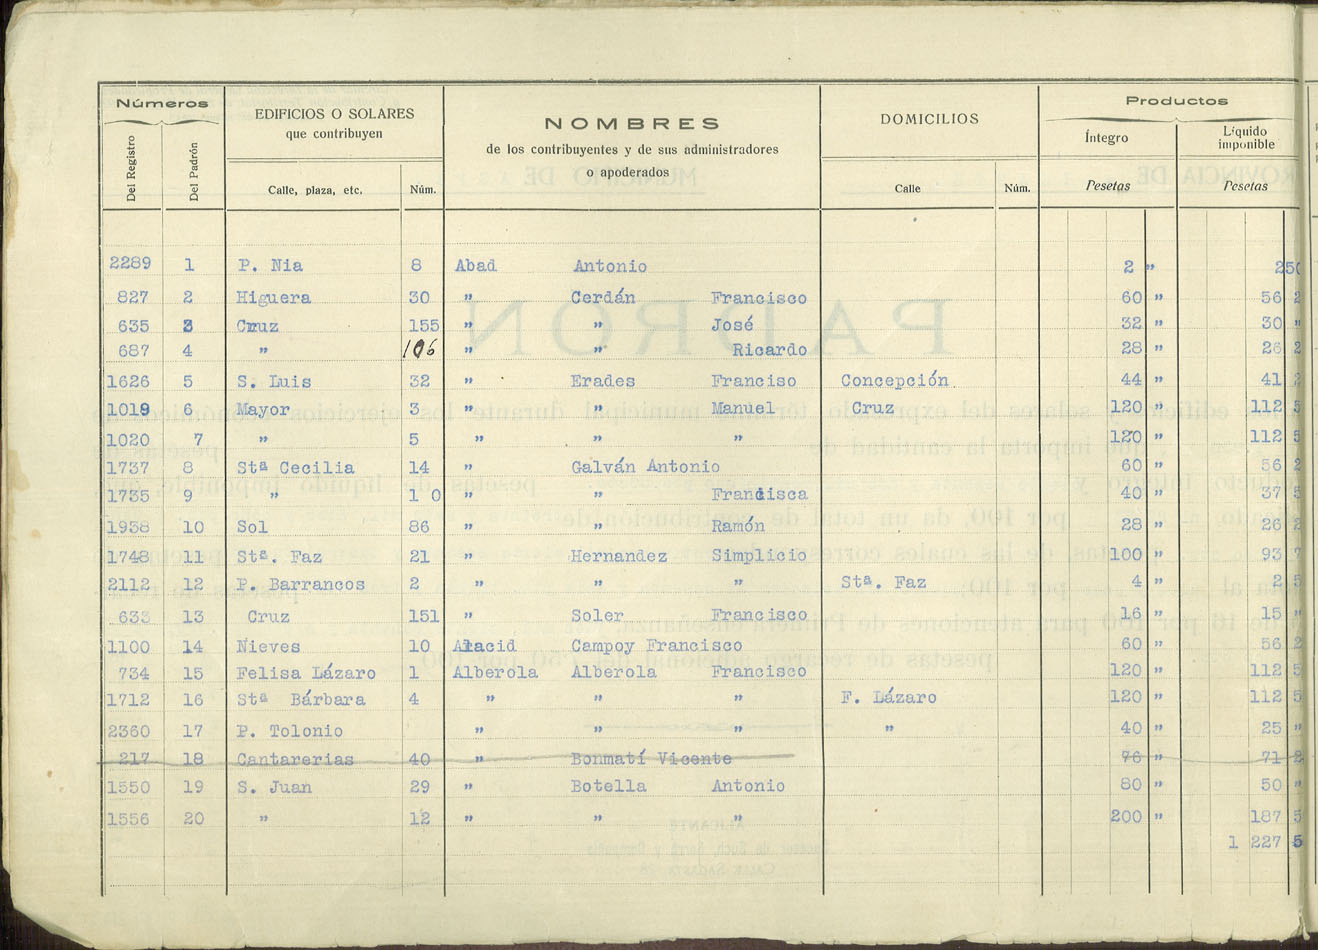 Números
EDIFICIOS O SOLARES
que contribuyen
NOMBRES
de los contribuyentes y de sus administradores
o apoderados
DOMICILIOS
Productos
Íntegro
Líquido
imponible
Del Registro
Del Padrón
Calle, plaza, etc.
Núm.
Calle
Núm.
Pesetas
Pesetas
2289 1 P. Nia 8 Abad Antonio 2 " 2 50
827 2 Higuera 30 " Cerdán Francisco 60 " 56 2
635 3 Cruz 155 " " José 32 " 30 "
687 4 " 106 " " Ricardo 28 " 26 2
1626 5 S. Luis 32 " Erades Franciso Concepción 44 " 41 2
1019 6 Mayor 3 " " Manuel Cruz 120 " 112 5
1020 7 " 5 " " " 120 " 112 5
1737 8 Stª Cecilia 14 " Galván Antonio 60 " 56 2
1735 9 " 1 0 " " Francisca 40 " 37 5
1958 10 Sol 86 " " Ramón 28 " 26 2
1748 11 Stª. Faz 21 " Hernandez Simplicio 100 " 93 7
2112 12 P. Barrancos 2 " " " Stª. Faz 4 " 2 5
633 13 Cruz 151 " Soler Francisco 16 " 15 "
1100 14 Nieves 10 Alacid Campoy Francisco 60 " 56 2
734 15 Felisa Lázaro 1 Alberola Alberola Francisco 120 " 112 5
1712 16 Stª Bárbara 4 " " " F. Lázaro 120 " 112 5
2360 17 P. Tolonio " " " " 40 " 25 "
217 18 Cantarerias 40 " Bonmatí Vicente 76 " 71 2
1550 19 S. Juan 29 " Botella Antonio 80 " 50 "
1556 20 " 12 " " " 200 " 187 5
1 227 5